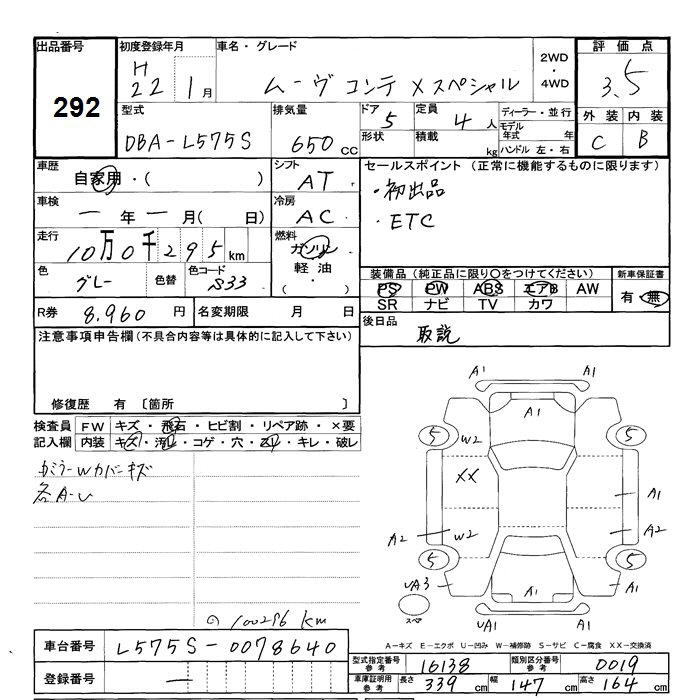 出品番号 初度登録年月 車名・グレード 2WD・4WD 評価点
292
H22 1月 ムーヴ コンテ Xスペシャル 3.5
型式 排気量 ドア 5 定員 4人 ディーラー・並行 外装 内装
DBA-L575S 650cc 形状 積載 kg モデル年式 年 C B
ハンドル 左・右
車歴 シフト セールスポイント(正常に機能するものに限ります)
自家用・( ) AT ・初出品
車検 冷房 ・ETC
一年一月( 日) AC
走行 燃料
10万0千295km ガソリン
色 色替 色コード 軽油・ 装備品(純正品に限り○をつけてください) 新車保証書
グレー S33 PS PW ABS エアB AW 有・無
SR ナビ TV カワ
R券 8,960円 名変期限 月 日 後日品
取説
注意事項申告欄(不具合内容等は具体的に記入して下さい)
修復歴 有 〔箇所 〕
検査員 FW キズ・飛石・ヒビ割・リペア跡・×要
記入欄 内装 キズ・汚レ・コゲ・穴・スレ・キレ・破レ
Wカバーキズ
各A-U
A1 A1
A1
5 W2 5
XX
A1
A2 W2 A2
5 5
UA3 A1 A1
スペア
UA1 A1
100296 km
A-キズ E-エクボ U-凹み W-補修跡 S-サビ C-腐食 XX-交換済
車台番号 L575S-0078640
型式指定番号 参考 16138 類別区分番号 参考 0019
登録番号 一
車庫証明用 参考 長さ 339cm 幅 147cm 高さ 164cm